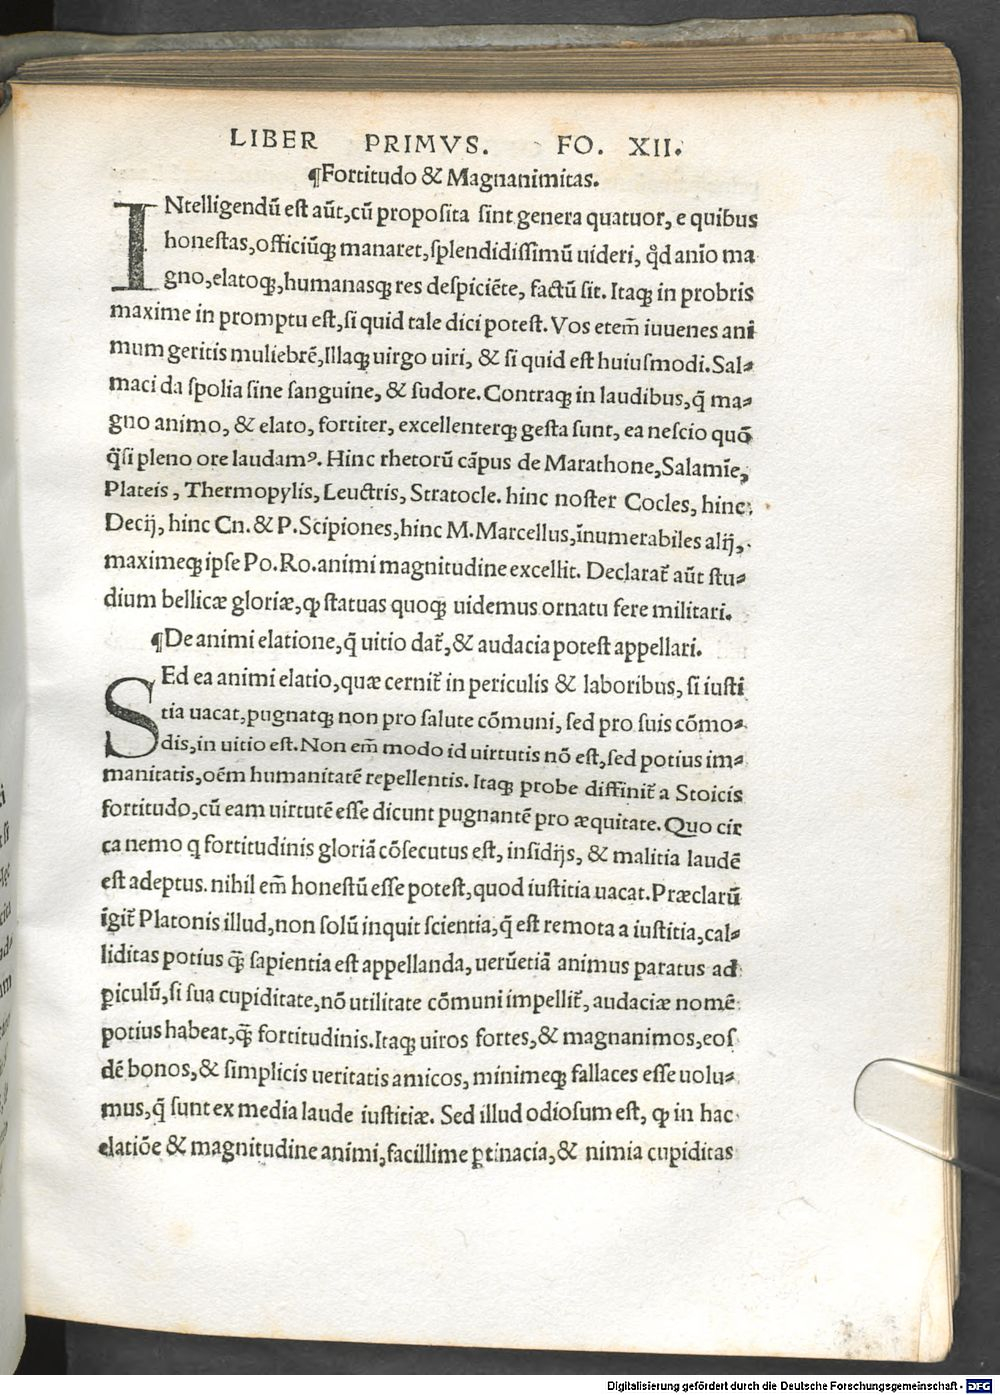 LIBER PRIMVS. FO. XII.
¶Fortitudo & Magnanimitas.
INtelligendū est aūt,cū proposita sint genera quatuor, e quibus
honestas,officiūq; manaret,splendidissimū uideri, qđ anīo ma
gno,elatoq;,humanasq; res despiciēte, factū sit. Itaq; in probris
maxime in promptu est,si quid tale dici potest. Vos eteñ iuuenes ani
mum geritis muliebrē,Illaq; uirgo uiri, & si quid est huiusmodi.Sal-
maci da spolia sine sanguine, & sudore.Contraq; in laudibus,q̄ ma-
gno animo, & elato, fortiter, excellenterq; gesta sunt, ea nescio quō
q̈si pleno ore laudamꝰ. Hinc rhetorū cāpus de Marathone,Salamīe,
Plateis, Thermopylis, Leuctris, Stratocle. hinc noster Cocles, hinc
Decij, hinc Cn. & P. Scipiones,hinc M.Marcellus,īnumerabiles alij,
maximeq; ipse Po. Ro. animi magnitudine excellit. Declarat̃ aūt stu-
dium bellicæ gloriæ, ꝙ statuas quoq; uidemus ornatu fere militari.
¶De animi elatione,q̄ uitio dat̃,& audacia potest appellari.
SEd ea animi elatio,quæ cernit̃ in periculis & laboribus, si iusti
tia uacat,pugnatq; non pro salute cōmuni, sed pro suis cōmo-
dis,in uitio est.Non em̃ modo id uirtutis nō est,sed potius im-
manitatis,oēm humanitatē repellentis. Itaq; probe diffinit̃ a Stoicis
fortitudo,cū eam uirtutē esse dicunt pugnantē pro æquitate. Quo cir
ca nemo q fortitudinis gloriā cōsecutus est, insidijs, & malitia laudē
est adeptus. nihil em̃ honestū esse potest,quod iustitia uacat.Præclarū
igit̃ Platonis illud,non solū inquit scientia,q̄ est remota a iustitia,cal-
liditas potius q̄ꝫ sapientia est appellanda, uerūetiā animus paratus ad
ꝑiculū,si sua cupiditate,nō utilitate cōmuni impellit̃, audaciæ nomē
potius habeat,q̄ꝫ fortitudinis.Itaq; uiros fortes,& magnanimos,eos
dē bonos,& simplicis ueritatis amicos, minimeq; fallaces esse uolu-
mus,q̄ sunt ex media laude iustitiæ. Sed illud odiosum est, ꝙ in hac
elatiōe & magnitudine animi,facillime ꝑtinacia,& nimia cupiditas
Digitalisierung gefördert durch die Deutsche Forschungsgemeinschaft - DFG